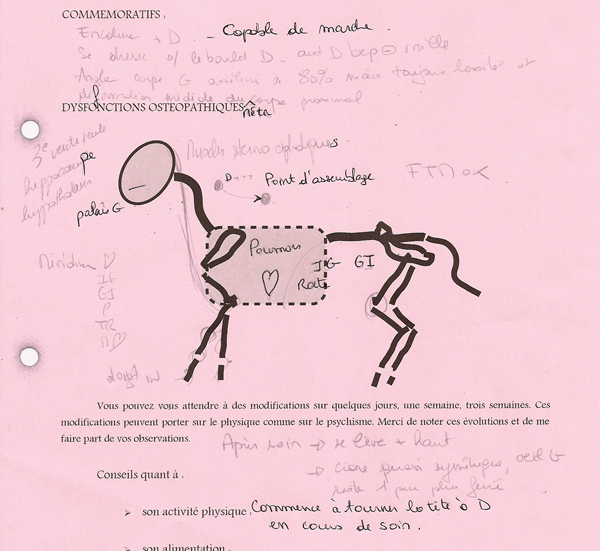 COMMEMORATIFS :
Encolure + D. - Capable de marche.
Se dresse s/ le boulet D. ant D bcp
Angle carpe G amélioré à 80% mais toujours et
déformation du carpe proximal
DYSFONCTIONS OSTEOPATHIQUES
nêta
3e ventricule
hippocampe
hypothalamus
palais G
Muscles sterno céphaliques
D---
Point d'assemblage
FTM OK
Poumons
IG GI
Rate
Méridien ♡
IG
GI
P
TR
M♡
doigt
Vous pouvez vous attendre à des modifications sur quelques jours, une semaine, trois semaines. Ces
modifications peuvent porter sur le physique comme sur le psychisme. Merci de noter ces évolutions et de me
faire part de vos observations.
Après soin → se lève + haut
→ crâne quasi symétrique, oeil G
reste 1 peu plus fermé
Conseils quant à :
➤ son activité physique : Commence à tourner la tête à D
en cours de soin.
➤ son alimentation :